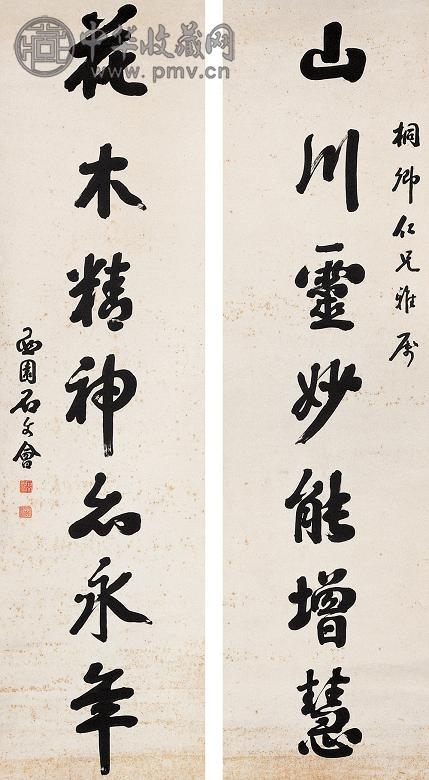 中华收藏网
www.pmv.cn
桐卿仁兄雅属
山川靈妙能增慧
花木精神永年
西園石文會